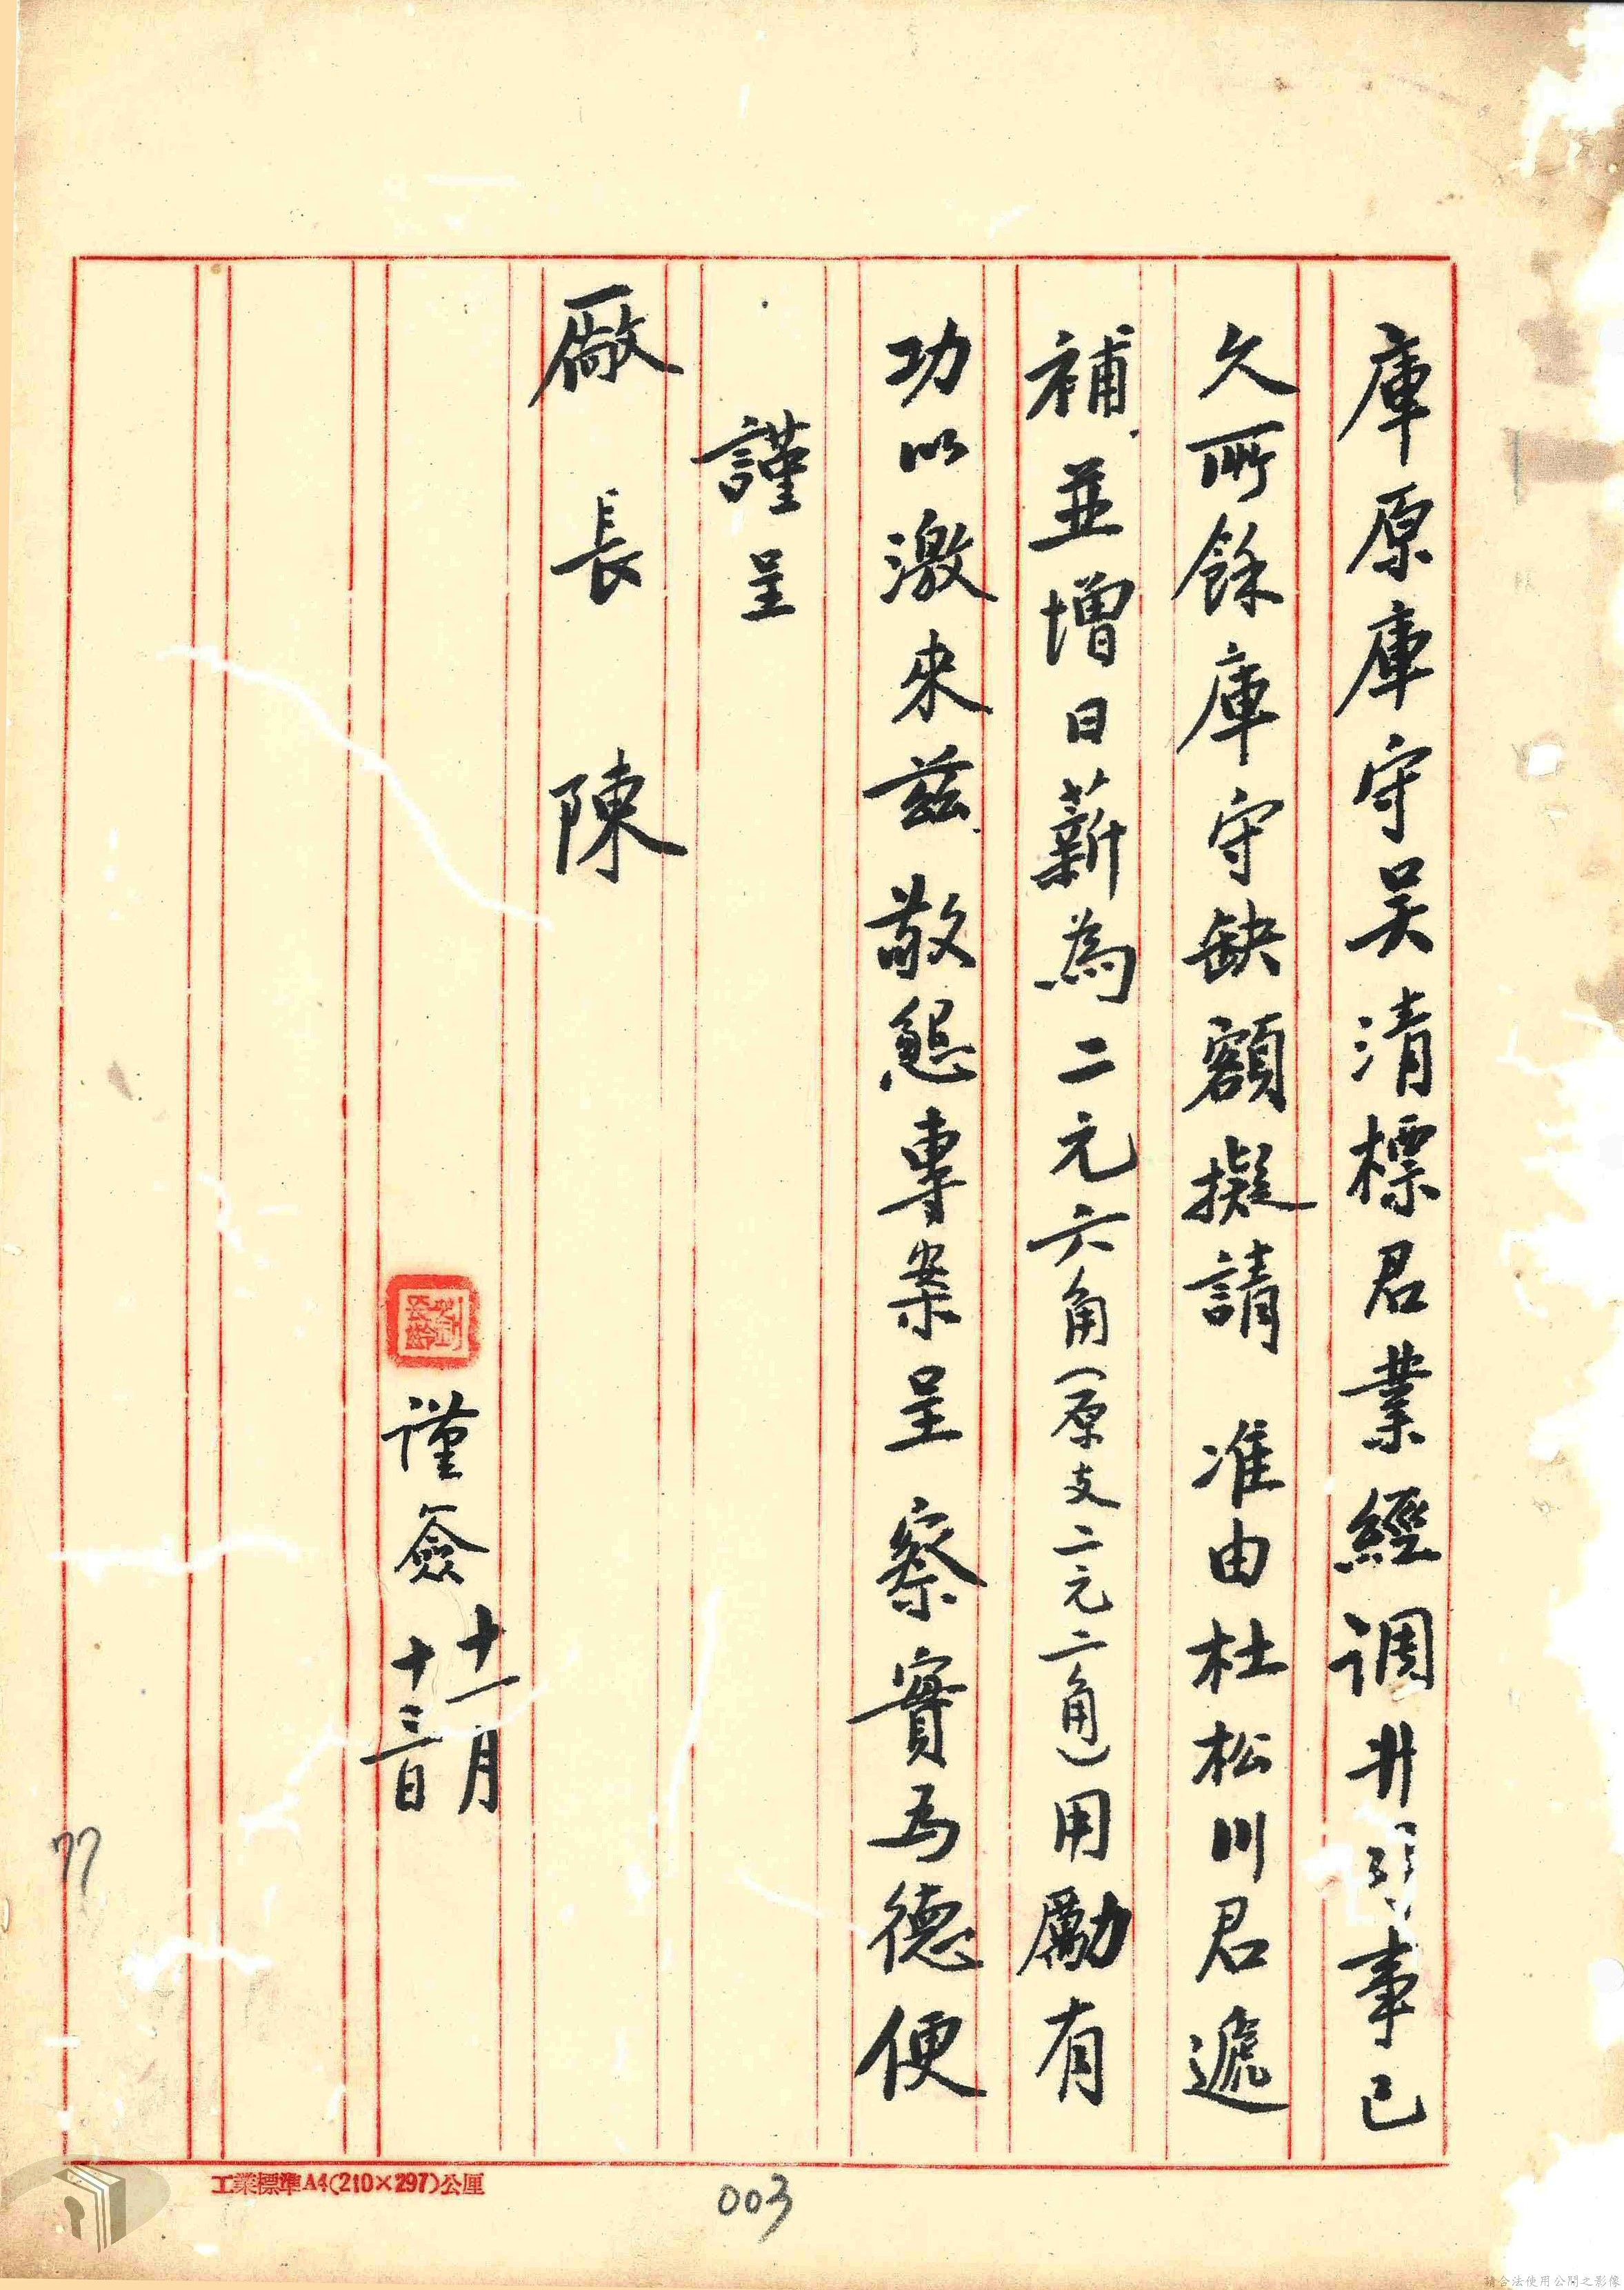 庫原庫守吴清標君業經调升事已
久所餘庫守缺額擬請 准由杜松川君遞
補並增日薪為二元六角(原支二元二角)用勵有
功以激來兹敬懇專案呈 察實為德便
謹呈
廠長陳
謹簽 十一月十三日
77
工業標準A4(210×297)公厘
003
請合法使用公開之影像